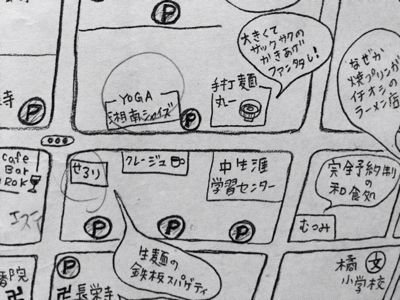 大きくて
サックサクの
かきあげ
ファンタジ!
なぜか
焼プリンが
イチオシの
ラーメン店
P
YOGA
湘南シャイズ
手打麺
丸一
P
P
寺
cafe
Bar
ROK
せろり
クレージュ
中生涯
学習センター
完全予約制
の
和食処
むつみ
P
P
P
生麺の
鉄板スパゲティ
P
卍長栄寺
院
卍
橘
文
小学校